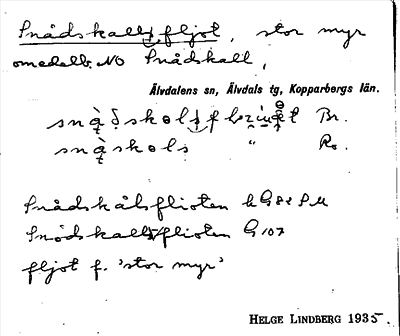 Snådskallsfljot, stor myr
omedelb. NO Snådskall,
Älvdalens sn, Älvdals tg, Kopparbergs län.
Br.
" Ro.
Snådskålsflioten k G82 SM
Snödskallsflioten G107
fljot f. 'stor myr'
HELGE LINDBERG 1935.